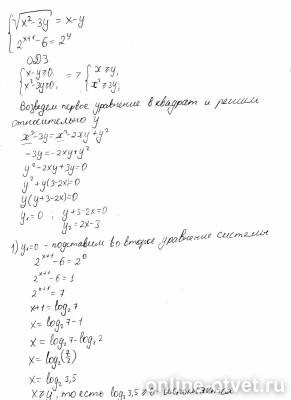 { √x²-3y = x-y
2ˣ⁺¹-6 = 2ʸ
ОДЗ
{ x-y≥0, => { x≥y,
x²-3y≥0, x²≥3y,
Возведем первое уравнение в квадрат и решим
относительно y
x²-3y = x²-2xy+y²
-3y = -2xy+y²
y²-2xy+3y=0
y²+y(3-2x)=0
y(y+3-2x)=0
y₁=0, y+3-2x=0
y₂=2x-3
1) y₁=0 - подставим во второе уравнение системы
2ˣ⁺¹-6=2⁰
2ˣ⁺¹-6=1
2ˣ⁺¹=7
x+1=log₂7
x=log₂7-1
x=log₂7-log₂2
x=log₂(7/2)
x=log₂3,5
x≥y, то есть log₂3,5≥0 -
online-otvet.ru